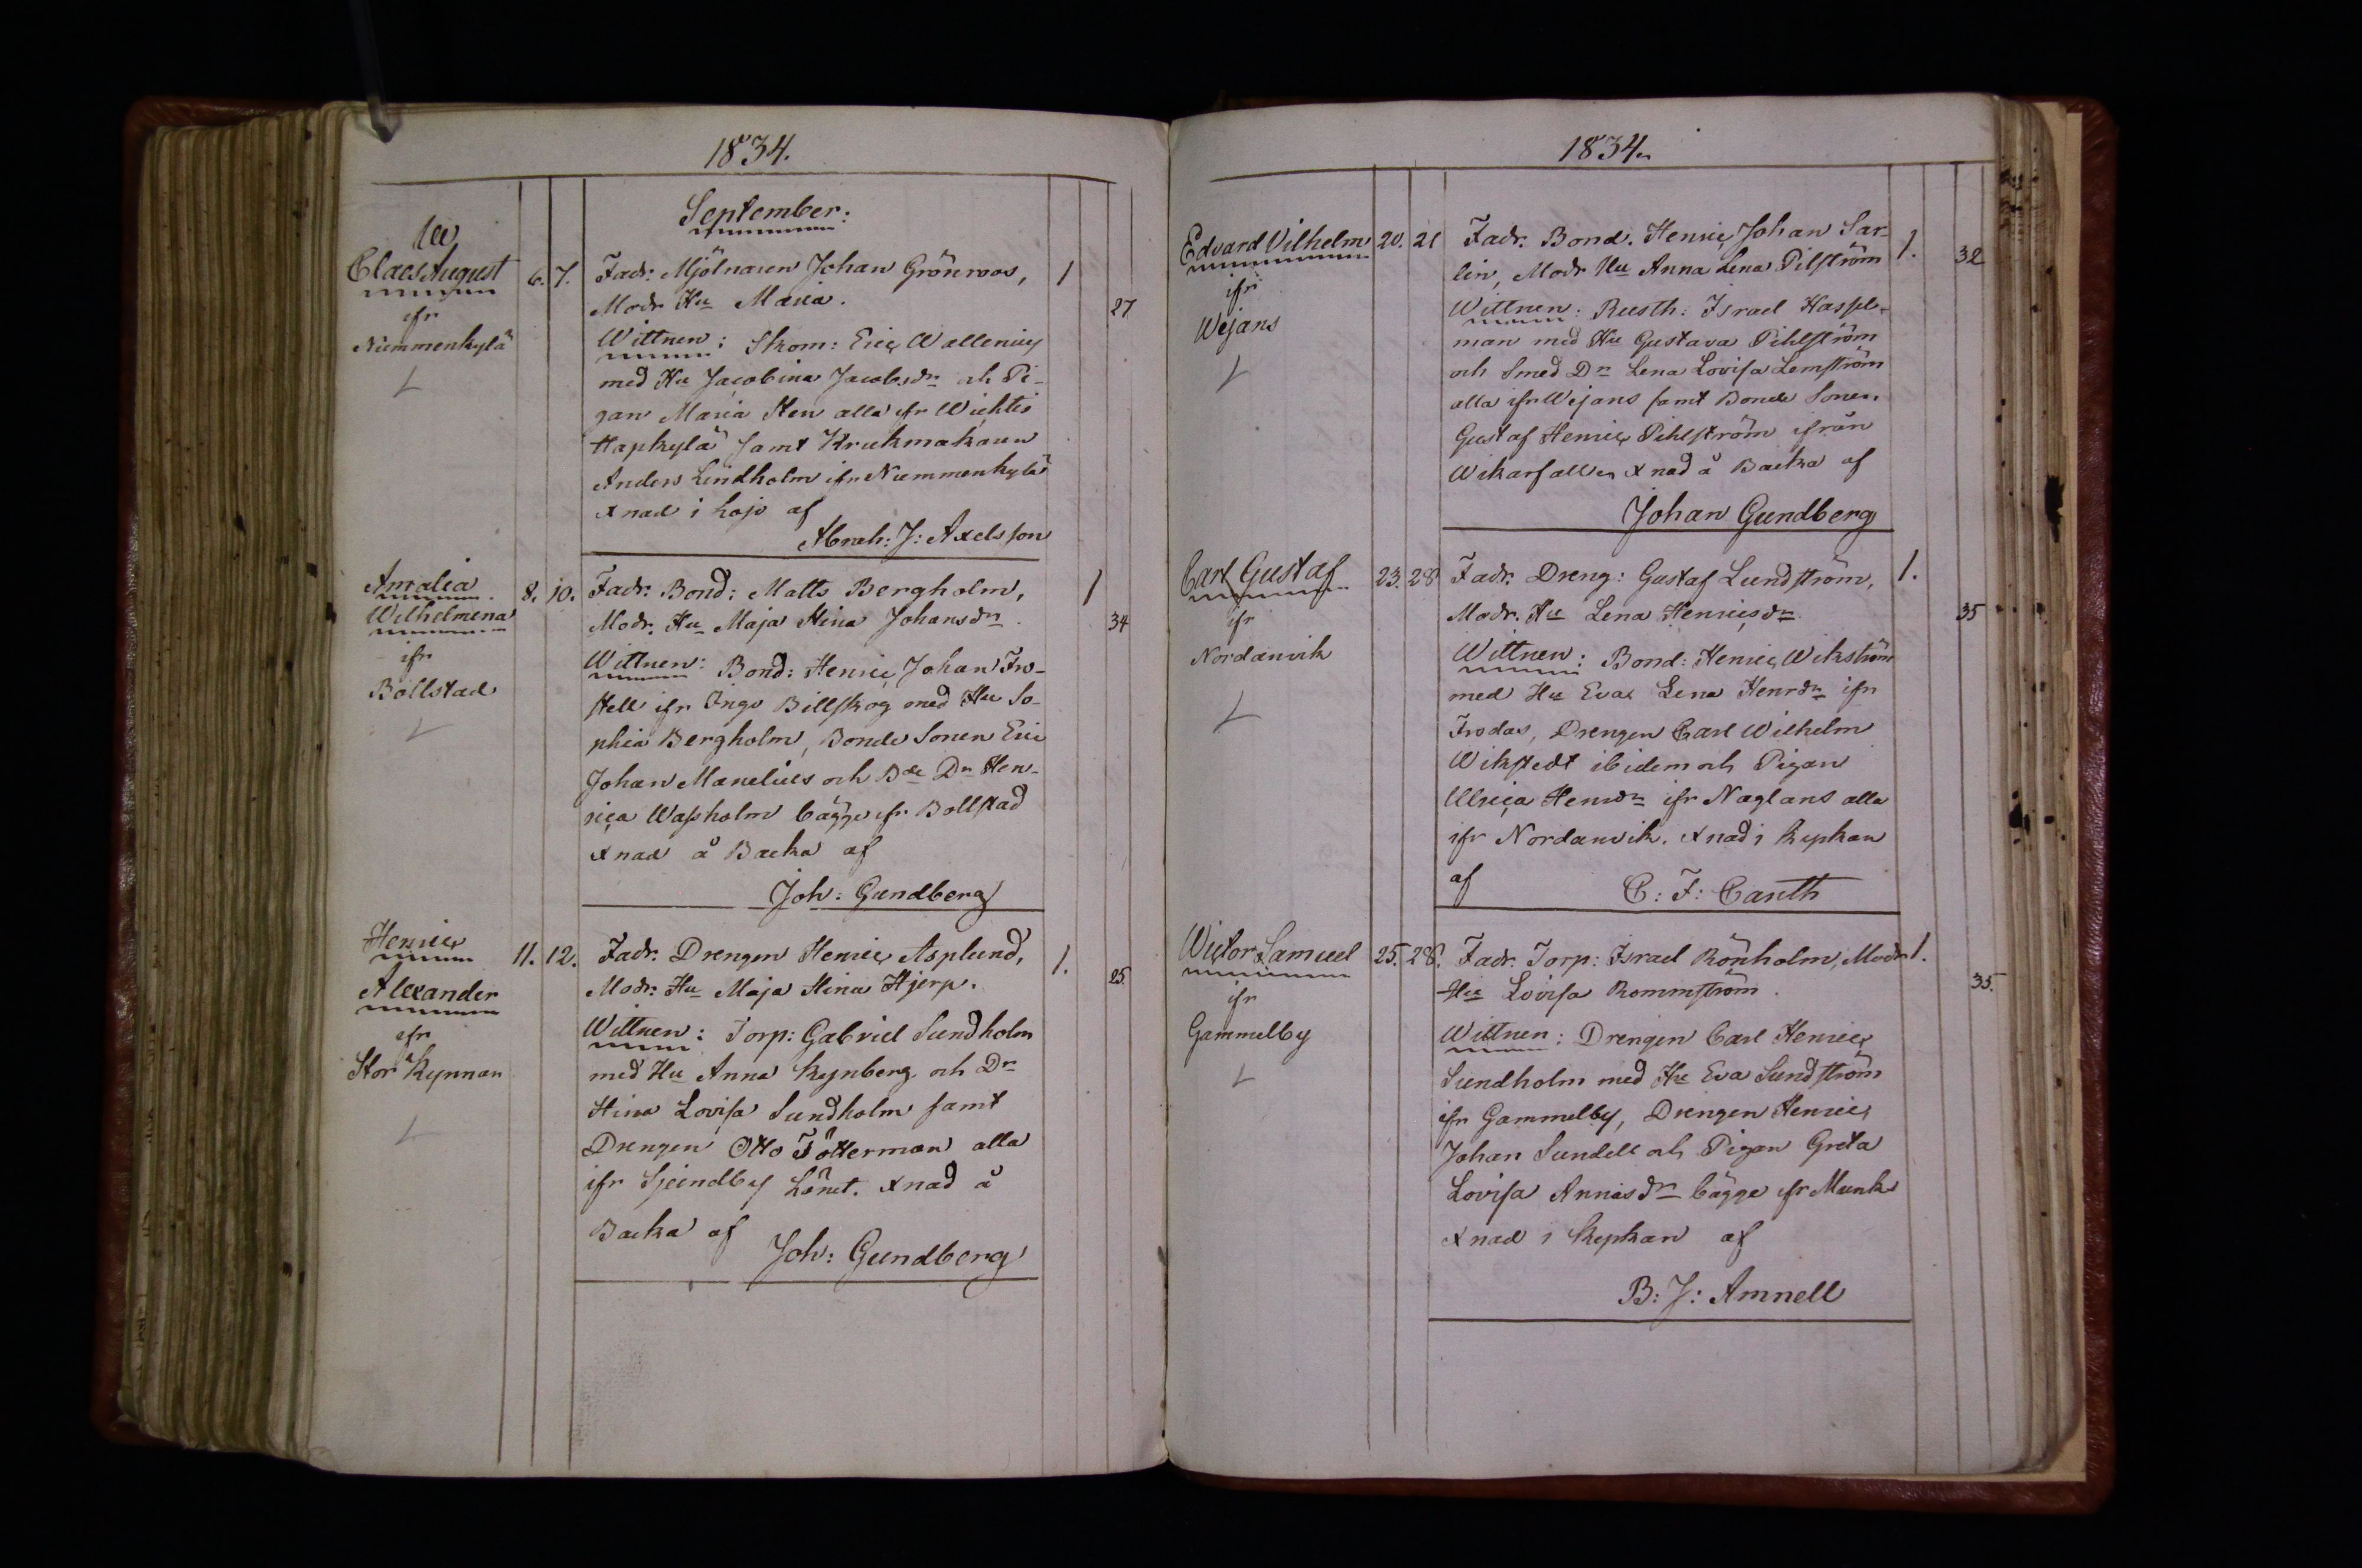 1834.
September:
Claes August
ifr
Nummenkylä
6. 7.
Fadr: Mjölnaren Johan Grönroos,
Modr Hu Maria.
1
27
Wittnen: Skom: Eric Wallenius
med Hu Jacobina Jacobsdr och Pi-
gan Maria Sten alla ifr Wichtis
Hapkylä samt Krukmakaren
Anders Lindholm ifr Nummenkylä
Xnad i Lojo af
Abrah: J: Axelsson
Amalia
Wilhelmina
ifr
Bollstad
8. 10.
Fadr. Bond: Matts Bergholm,
Modr. Hu Maja Stina Johansdr.
1
34
Wittnen: Bond: Henric Johan Fro-
stell ifr Ingo Billskog med Hu So-
phia Bergholm, Bonde Sonen Eric
Johan Manelius och Bde Dr Hen-
rica Wassholm bägge ifr Bollstad
Xnad å Backa af
Joh: Gundberg
Henric
Alexander
ifr
Stor Kynnan
11. 12.
Fadr. Drengen Henric Asplund,
Modr: Hu Maja Stina Hjerp.
1.
25
Wittnen: Torp: Gabriel Sundholm
med Hu Anna Rynberg och Dr
Stina Lovisa Sundholm samt
Drengen Otto Fötterman alla
ifr Sjundby Lönet. Xnad å
Backa af
Joh: Gundberg
1834.
Edvard Vilhelm
ifr
Wejans
20. 21
Fadr. Bond. Henric Johan Sar-
lin, Modr Hu Anna Lena Pilström
1.
32
Wittnen: Rusth: Israel Hassel-
man med Hu Gustava Pihlström
och Smed Dr Lena Lovisa Lemström
alla ifr Wejans samt Bonde Sonen
Gustaf Henric Pihlström ifrån
Wikarfall Xnad å Backa af
Johan Gundberg
Carl Gustaf
ifr
Nordanvik
23. 28
Fadr. Dreng: Gustaf Lundström,
Modr. Hu Lena Henricsdr
1.
35
Wittnen: Bond: Henric Wikström
med Hu Eva Lena Henrdr ifr
Frodas, Drengen Carl Wilhelm
Wikstedt ibidem och Pigan
Ulrica Henrdr ifr Naglans alla
ifr Nordanvik. Xnad i Kyrkan
af C: F: Canth
Wictor Samuel
ifr
Gammelby
25. 28.
Fadr. Torp: Israel Rönholm, Modr
Hu Lovisa Rommström.
1.
35.
Wittnen: Drengen Carl Henric
Sundholm med Hu Eva Sundström
ifr Gammelby, Drengen Henric
Johan Sundell och Pigan Greta
Lovisa Annasdr bägge ifr Munks
Xnad i Kyrkan af
B: J: Amnell